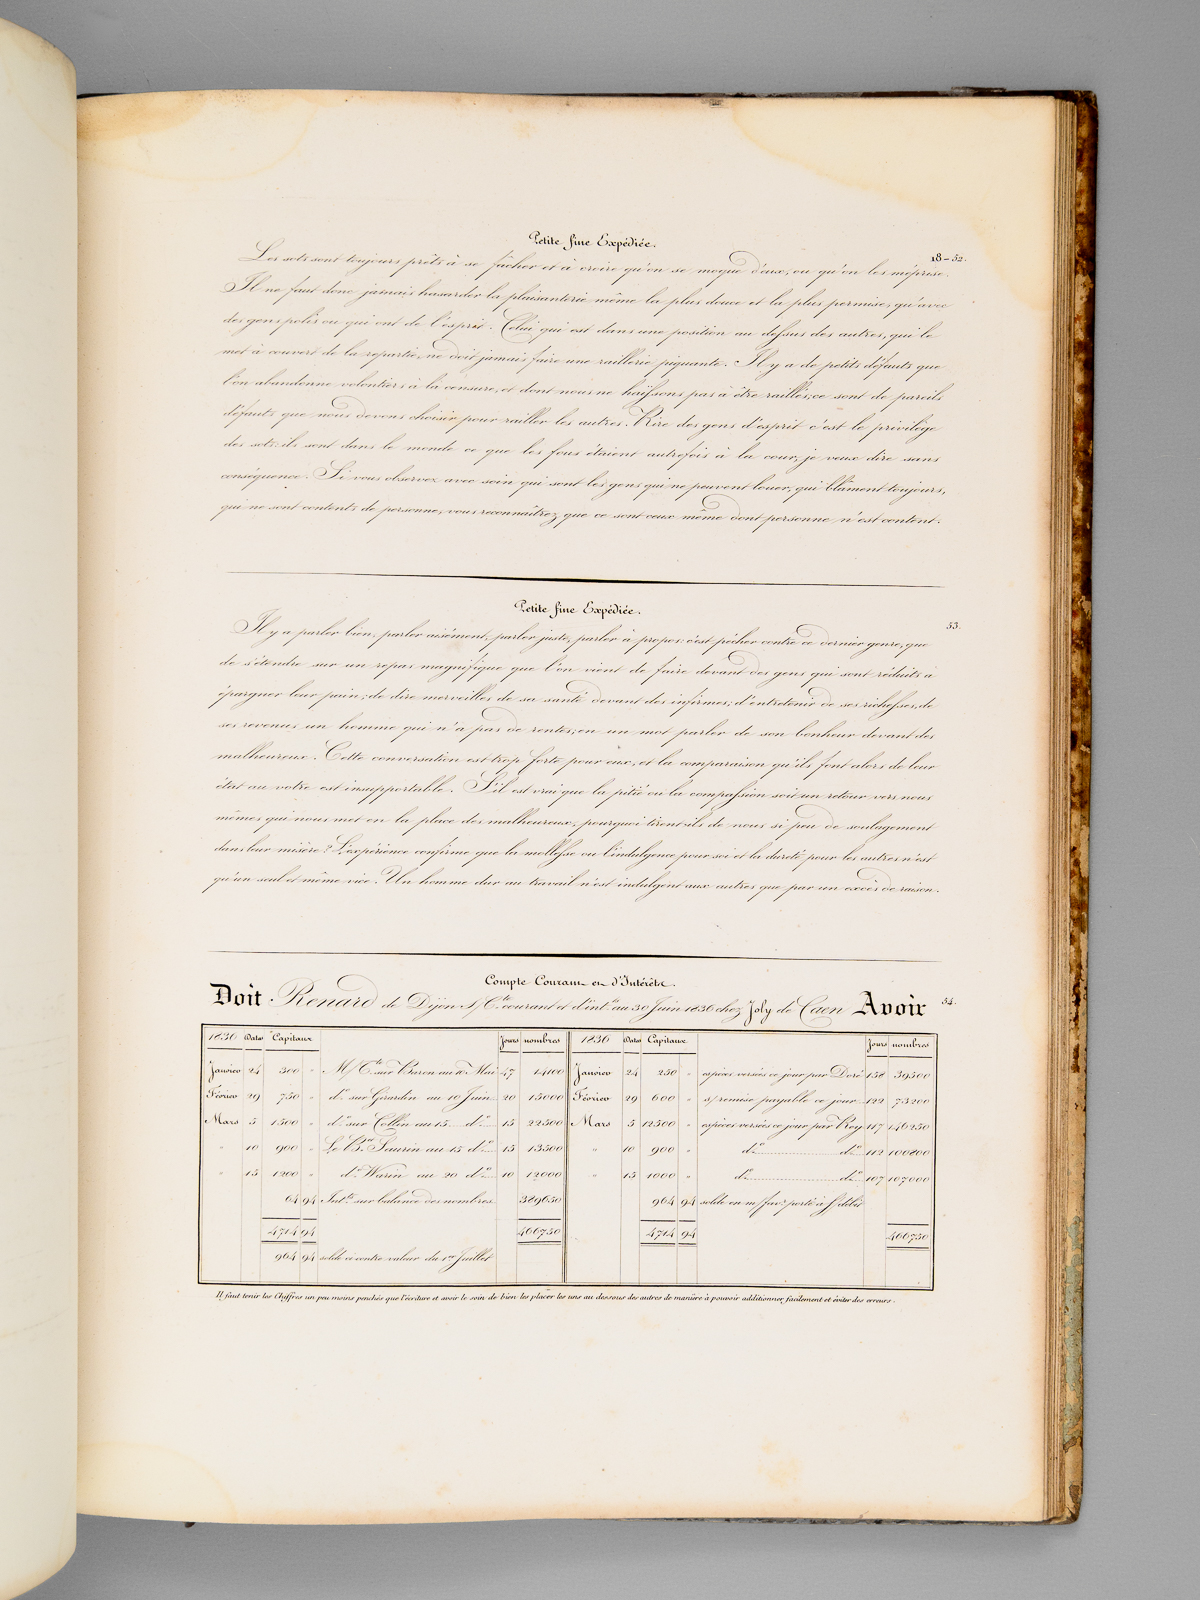 Petite fine Expédiée.
18-52.
Les sots sont toujours prêts à se fâcher et à croire qu'on se moque d'eux, ou qu'on les méprise.
Il ne faut donc jamais hasarder la plaisanterie même la plus douce et la plus permise, qu'avec
des gens polis ou qui ont de l'esprit. Celui qui est dans une position au dessus des autres, qui le
met à couvert de la repartie, ne doit jamais faire une raillerie piquante. Il y a de petits défauts que
l'on abandonne volontiers à la censure, et dont nous ne haïssons pas à être raillés; ce sont de pareils
défauts que nous devons choisir pour railler les autres. Rire des gens d'esprit c'est le privilège
des sots: ils sont dans le monde ce que les fous étaient autrefois à la cour, je veux dire sans
conséquence. Si vous observez avec soin qui sont les gens qui ne peuvent louer, qui blâment toujours,
qui ne sont contents de personne, vous reconnaîtrez que ce sont ceux même dont personne n'est content.
Petite fine Expédiée.
53.
Il y a parler bien, parler aisément, parler juste, parler à propos: c'est pécher contre ce dernier genre, que
de s'étendre sur un repas magnifique que l'on vient de faire devant des gens qui sont réduits à
épargner leur pain; de dire merveilles de sa santé devant des infirmes; d'entretenir de ses richesses, de
ses revenus un homme qui n'a pas de rentes; en un mot parler de son bonheur devant des
malheureux. Cette conversation est trop forte pour eux, et la comparaison qu'ils font alors de leur
état au votre est insupportable. S'il est vrai que la pitié ou la compassion soit un retour vers nous
mêmes qui nous met en la place des malheureux, pourquoi tirent-ils de nous si peu de soulagement
dans leur misère? L'expérience confirme que la mollesse ou l'indulgence pour soi et la dureté pour les autres n'est
qu'un seul et même vice. Un homme dur au travail n'est indulgent aux autres que par un excès de raison.
Compte Courant et d'Intérêts.
Doit Renard de Dijon S/Cte courant et d'int.ts au 30 Juin 1836 chez Joly de Caen Avoir
54.
1836 Dates Capitaux Jours nombres 1836 Dates Capitaux Jours nombres
Janvier 24 300 " M/Cte sur Baron au 10 Mai 47 14100 Janvier 24 250 " espèces versées ce jour par Doré 158 39500
Février 29 750 " do sur Girardin au 10 Juin 20 15000 Février 29 600 " s/remise payable ce jour 122 73200
Mars 5 1500 " do sur Collen au 15 do 15 22500 Mars 5 12500 " espèces versées ce jour par Roy 117 146250
" 10 900 " Le Bon Saurin au 15 do 15 13500 " 10 900 " do do 112 100800
" 15 1200 " do Warin au 20 do 10 12000 " 15 1000 " do do 107 107000
64 94 Int.ts sur balance des nombres 389650 964 94 solde en m/fav.r porté à s/débit
4714 94 466750 4714 94 466750
964 94 solde ci contre valeur du 1er Juillet
Il faut tenir les Chiffres un peu moins penchés que l'écriture et avoir le soin de bien les placer les uns au dessous des autres de manière à pouvoir additionner facilement et éviter des erreurs.